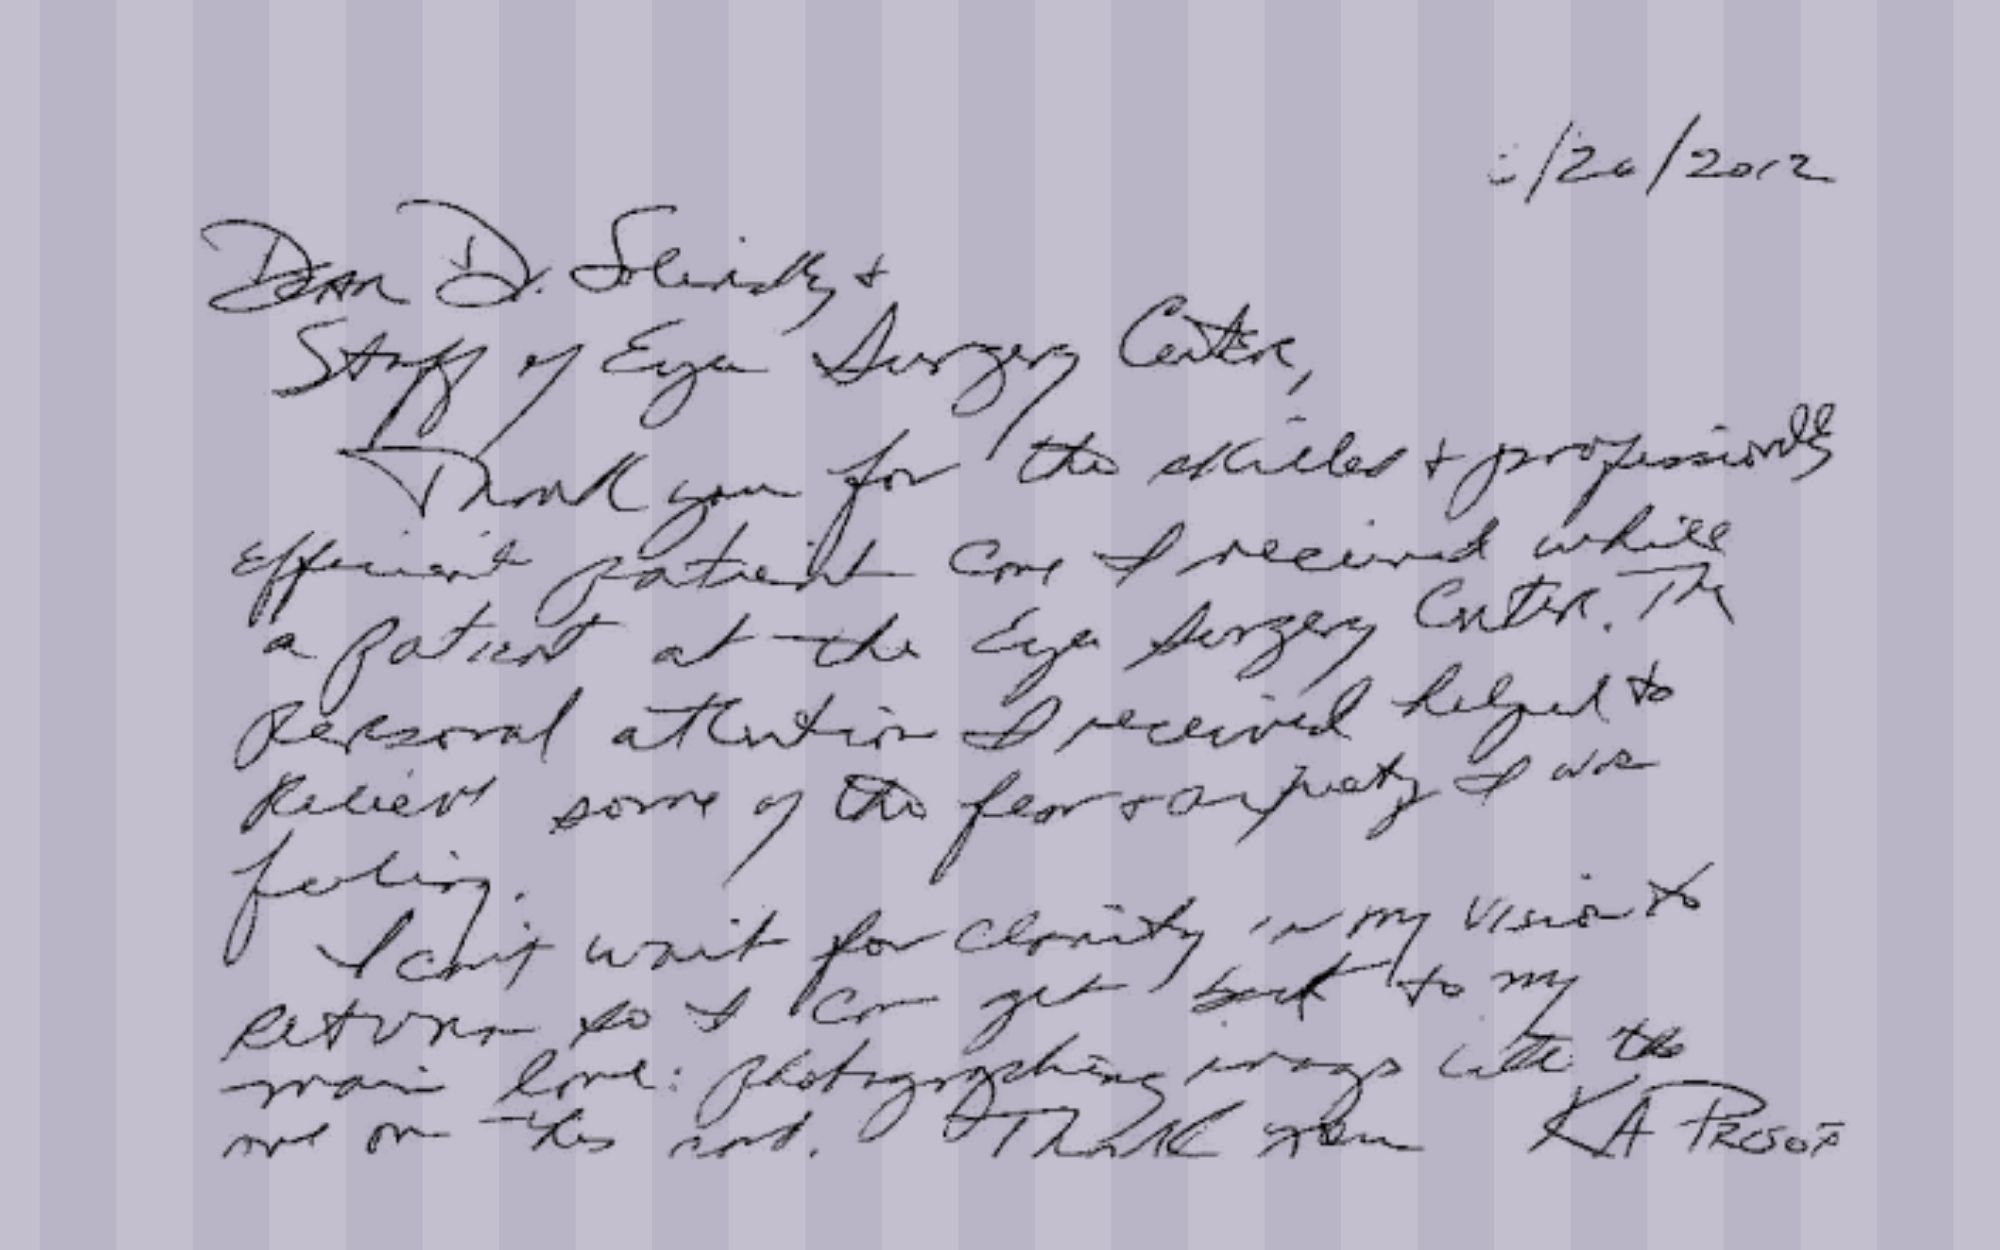 /26/2012
Dear Dr. &
Staff of Eye Surgery Center,
Thank you for the skilled & professionally
efficient patient care I received while
a patient at the Eye Surgery Center. The
personal attention I received helped to
relieve some of the fear & anxiety I was
feeling.
I can't wait for clarity in my vision to
return so I can get back to my
main love: photographing images like the
one on this card. Thank you KA